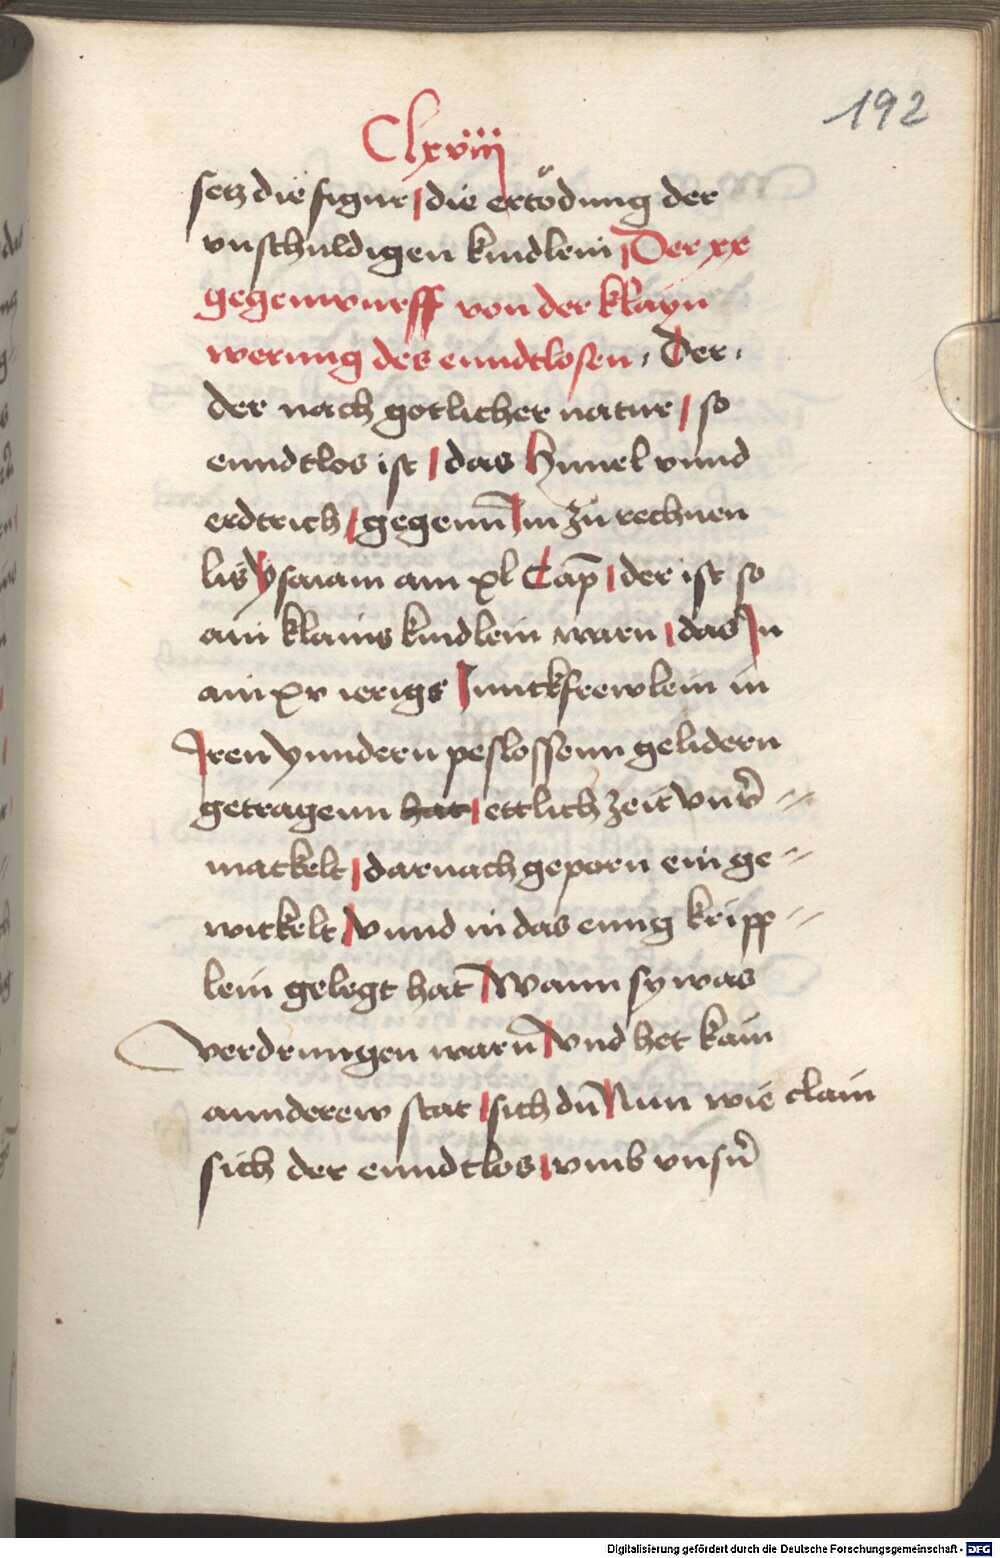 192
Clxviiij
setz die figur | die ertödung der
vnschuldigen kindlein | Der xx
gegenwurff von der klayn
werung des enndtlosen · Der ·
der nach gotlicher natur | so
enndtlos ist | das Himel vnnd
erdtrich | gegenn̄ Im zu rechnen
lis ysaiam am xl Cap̄ | der ist so
ain klains kindlein warn | das In
ain xv ierigs Junckfrewlein in
Iren ynndern peslossenn gelidern
getragenn hat | ettlich zeit vnv̄
mackelt | darnach geporn ein ge
wickelt | vnnd in das enng kripp
lein gelegt hat | Wann sy was
verdrungen warn̄ | vnd het kain
annderew stat | sich dū Nun wie clain
sich der enndtlos | vmb vnsn̄
Digitalisierung gefördert durch die Deutsche Forschungsgemeinschaft - DFG